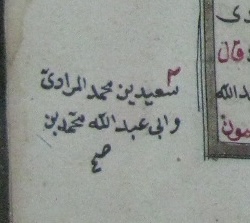 ٢
سعيد بن محمد المرادي
وابي عبد الله محمد بن
صح
وقال
عبد الله